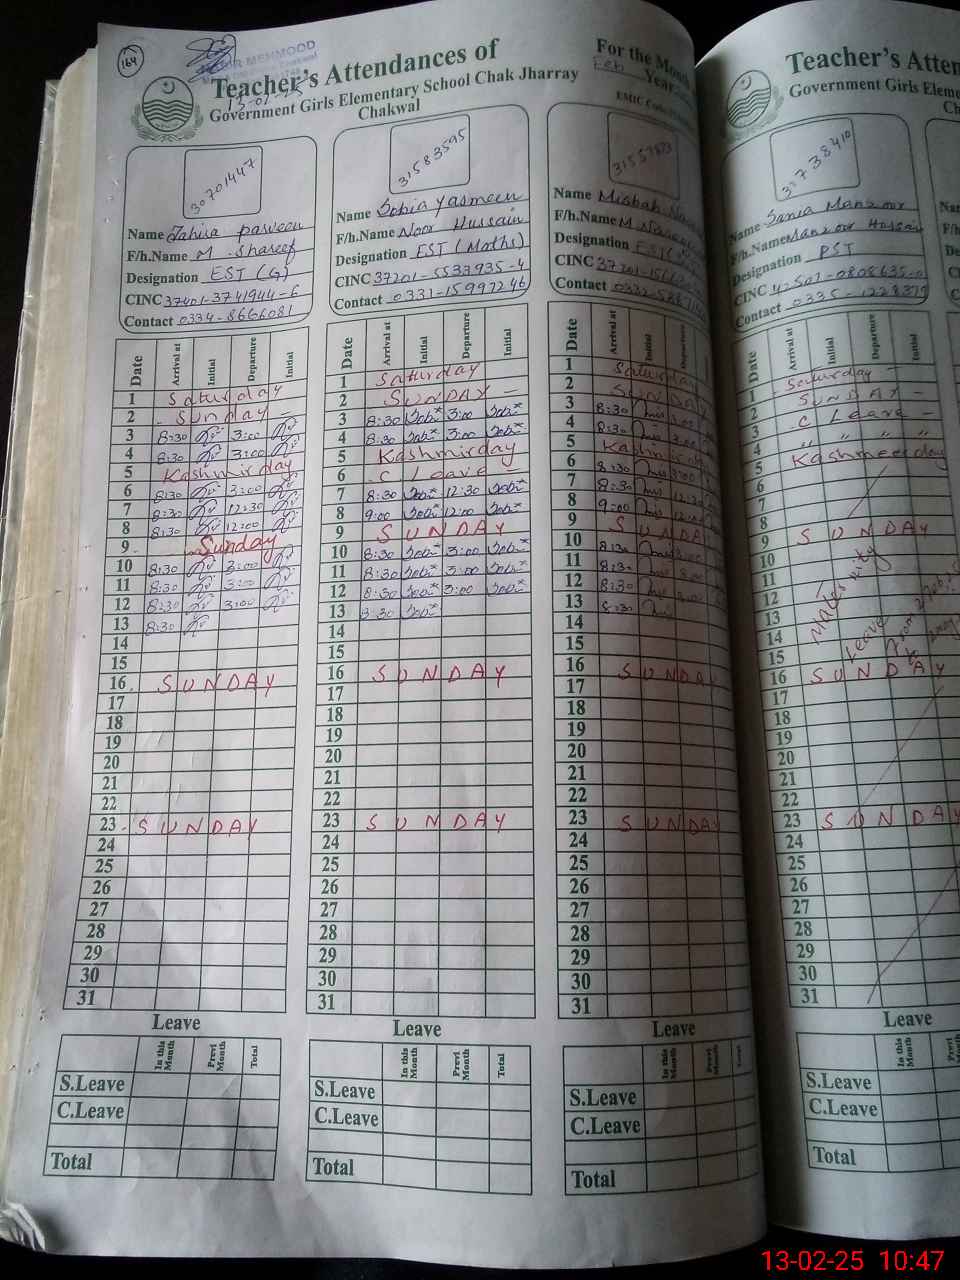 164
MEHMOOD
Teacher's Attendances of
Government Girls Elementary School Chak Jharray
Chakwal
For the Month
Feb
Year
EMIC Code
30701447
Name Tahira Parveen
F/h.Name M. Shareef
Designation EST (G)
CINC 37401-3741944-6
Contact 0334-8666081
Date Arrival at Initial Departure Initial
1 Saturday
2 Sunday
3 8:30 3:00
4 8:30 3:00
5 Kashmir day
6 8:30 3:00
7 8:30 12:30
8 8:30 12:00
9 Sunday
10 8:30 3:00
11 8:30 3:00
12 8:30 3:00
13 8:30
14
15
16 SUNDAY
17
18
19
20
21
22
23 SUNDAY
24
25
26
27
28
29
30
31
Leave
In this Month Previ Month Total
S.Leave
C.Leave
Total
31583595
Name Sobia Yasmeen
F/h.Name Noor Hussain
Designation EST (Maths)
CINC 37201-5533935-4
Contact 0331-15997246
Date Arrival at Initial Departure Initial
1 Saturday
2 SUNDAY
3 8:30 3:00
4 8:30 3:00
5 Kashmir day
6 C. Leave
7 8:30 12:30
8 9:00 12:00
9 SUNDAY
10 8:30 3:00
11 8:30 3:00
12 8:30 3:00
13 8:30
14
15
16 SUNDAY
17
18
19
20
21
22
23 SUNDAY
24
25
26
27
28
29
30
31
Leave
In this Month Previ Month Total
S.Leave
C.Leave
Total
Name Misbah
F/h.Name M
Designation EST
CINC
Contact
Date Arrival at Initial Departure
1 Saturday
2 SUNDAY
3 8:30 3:00
4 8:30 3:00
5 Kashmir
6 8:30 3:00
7 8:30 12:30
8 9:00 12:00
9 SUNDAY
10 8:30 3:00
11 8:30 3:00
12 8:30 3:00
13 8:30
14
15
16 SUNDAY
17
18
19
20
21
22
23 SUNDAY
24
25
26
27
28
29
30
31
Leave
In this Month Previ Month Total
S.Leave
C.Leave
Total
Teacher's Atten
Government Girls Eleme
Ch
Name Sania Manzoor
F/h.Name Manzoor Hussain
Designation PST
CINC
Contact
Date Arrival at Initial Departure Initial
1 Saturday
2 SUNDAY
3 C Leave
4 " " " "
5 Kashmeer day
6
7
8
9 SUNDAY
10
11
12
13
14
15
Maternity
Leave
From
16 SUNDAY
17
18
19
20
21
22
23 SUNDAY
24
25
26
27
28
29
30
31
Leave
In this Month Previ Month
S.Leave
C.Leave
Total
13-02-25 10:47